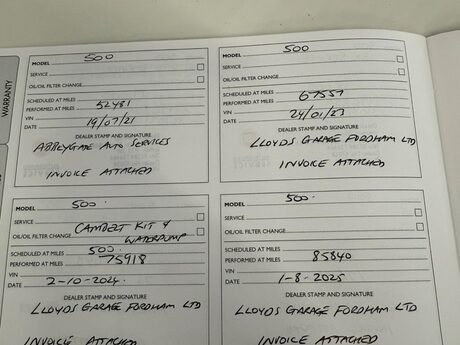 WARRANTY
MODEL 500
SERVICE
OIL/OIL FILTER CHANGE
SCHEDULED AT MILES
PERFORMED AT MILES 52481
VIN
DATE 19/07/21
DEALER STAMP AND SIGNATURE
ABBEYGATE AUTO SERVICES
INVOICE ATTACHED
MODEL 500
SERVICE
OIL/OIL FILTER CHANGE
SCHEDULED AT MILES
PERFORMED AT MILES 67557
VIN
DATE 24/01/23
DEALER STAMP AND SIGNATURE
LLOYDS GARAGE FORDHAM LTD
INVOICE ATTACHED
MODEL 500
SERVICE
OIL/OIL FILTER CHANGE CAMBELT KIT & WATERPUMP
SCHEDULED AT MILES 500
PERFORMED AT MILES 75918
VIN
DATE 2-10-2024
DEALER STAMP AND SIGNATURE
LLOYDS GARAGE FORDHAM LTD
INVOICE ATTACHED
MODEL 500
SERVICE
OIL/OIL FILTER CHANGE
SCHEDULED AT MILES
PERFORMED AT MILES 85840
VIN
DATE 1-8-2025
DEALER STAMP AND SIGNATURE
LLOYDS GARAGE FORDHAM LTD
INVOICE ATTACHED